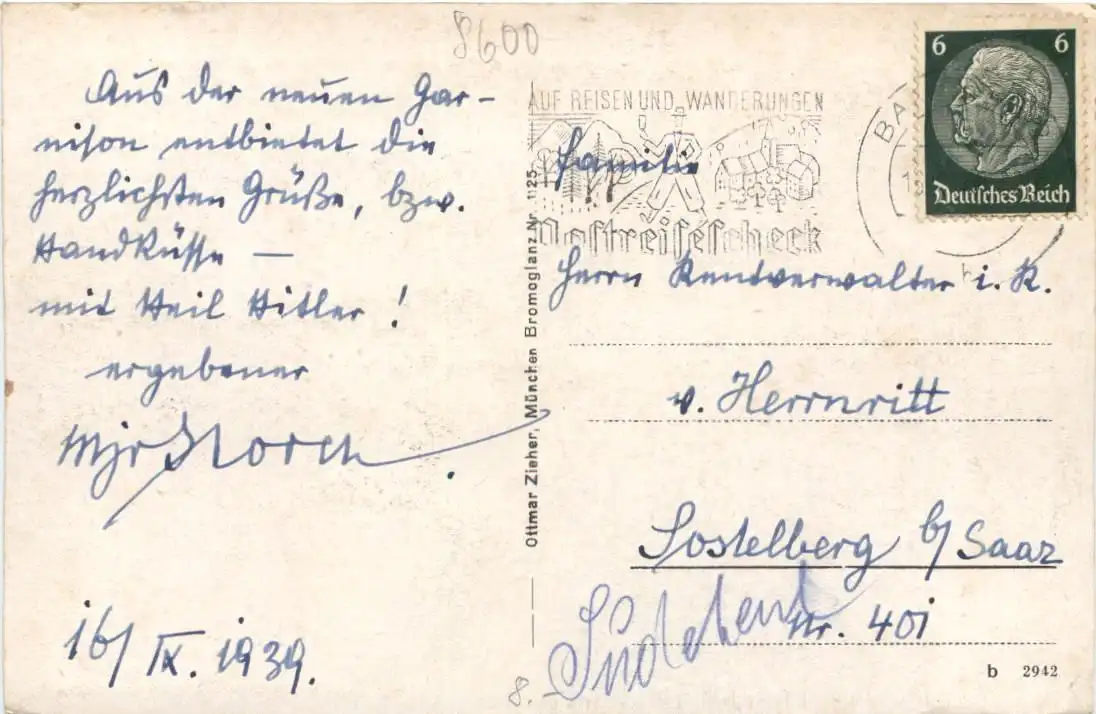 8600
Aus der neuen Gar-
nison entbietet die
herzlichsten Grüße, bzw.
Handküsse —
mit Heil Hitler!
ergebener
Mjr
16/IX. 1939.
Ottmar Zieher, München Bromoglanz Nr. 1125
AUF REISEN UND WANDERUNGEN
Postreisescheck
BA
6 6
Deutsches Reich
Familie
Herrn Rentverwalter i. R.
v. Herrnritt
b/ Saaz
Nr. 401
Sudetenl
8.
b 2942